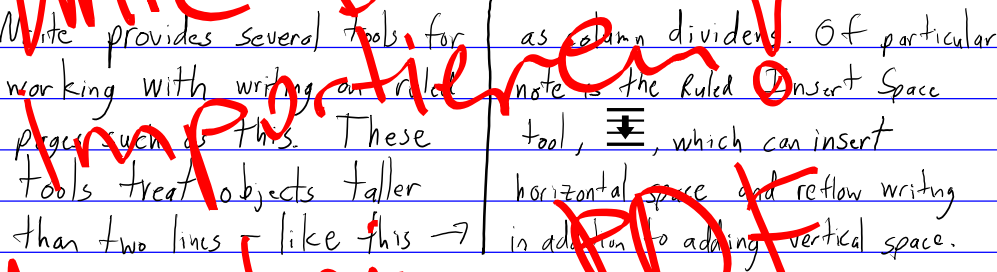 Write provides several tools for
working with writing on ruled
pages such as this. These
tools treat objects taller
than two lines - like this →
as column dividers. Of particular
note is the Ruled Insert Space
tool, , which can insert
horizontal space and reflow writng
in addition to adding vertical space.
Importieren!
PDF